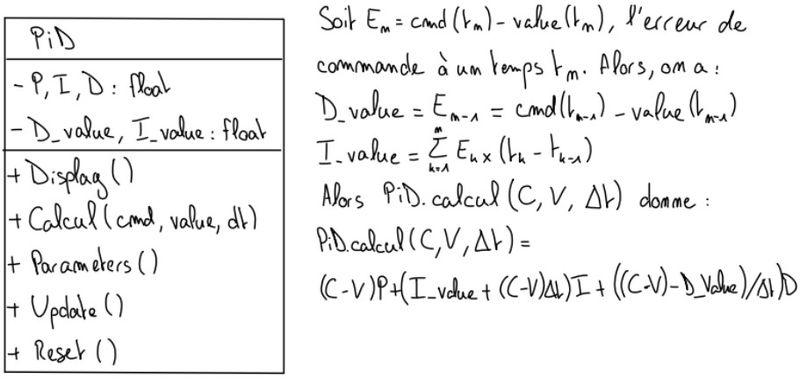 PiD
- P, I, D : float
- D_value, I_value : float
+ Display()
+ Calcul(cmd, value, dt)
+ Parameters()
+ Update()
+ Reset()
Soit Eₙ = cmd(tₙ) - value(tₙ), l'erreur de
commande à un temps tₙ. Alors, on a :
D_value = Eₙ₋₁ = cmd(tₙ₋₁) - value(tₙ₋₁)
I_value = ∑ₖ₌₁ⁿ Eₖ × (tₖ - tₖ₋₁)
Alors PiD.calcul(C, V, Δt) donne :
PiD.calcul(C, V, Δt) =
(C-V)P+(I_value + (C-V)Δt)I + ((C-V)-D_Value)/Δt)D